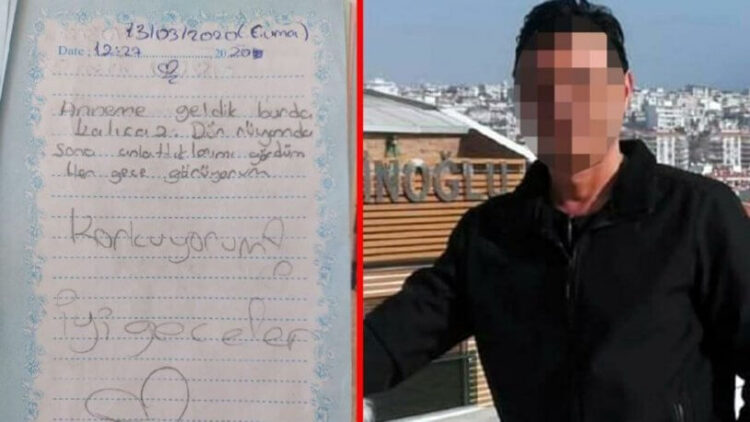 13/03/2020 (Cuma)
Date: 12:27 2020
Anneme geldik burda
kalıcaz. Dün rüyamda
sana anlattıklarımı gördüm
Her gece görüyorum
Korkuyorum
İyi geceler
INOĞLU